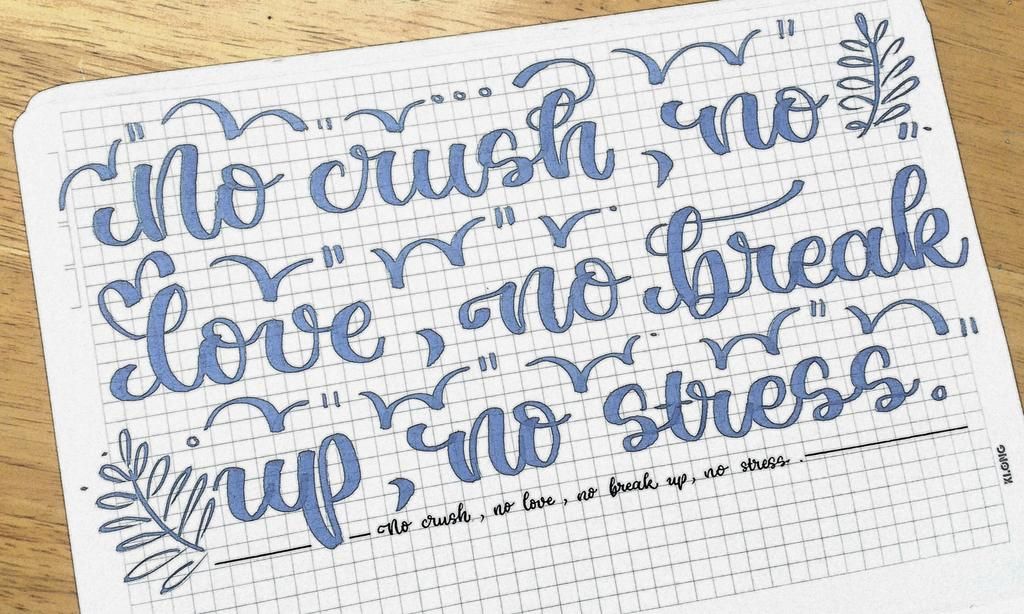 No crush, no
love, no break
up, no stress.
No crush, no love, no break up, no stress.
KLONG